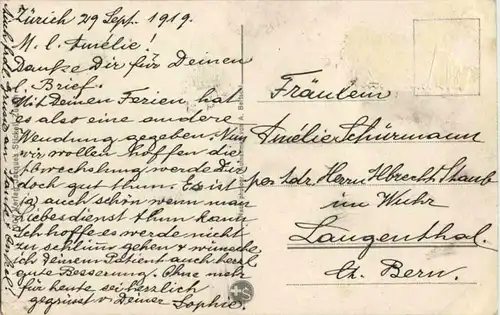 Zürich 29 Sept. 1919.
M. l. Amélie!
Danke Dir für Deinen
l. Brief.
Mit Deinen Ferien, hat
es also eine andere
Wendung gegeben. Nun
wir wollen hoffen die
Abwechslung werde Dir
doch gut thun. Es ist
ja auch schön wenn man
Liebesdienst thun kann
Ich hoffe es werde nicht
zu schlimm gehen & wünsche
ich Deinem Patient auch herzl.
gute Besserung. Ohne mehr
für heute sei herzlich
gegrüsst v. Deiner Sophie.
Fräulein
Amélie Schürmann
per Adr. Herrn Albrecht Staub
im Wuhr
Langenthal.
Ct. Bern.